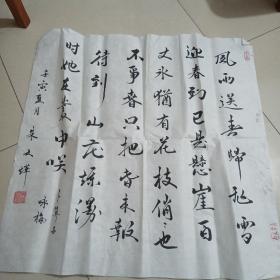 風雨送春歸飛雪
迎春到已是懸崖百
丈冰猶有花枝俏也
不爭春只把春来報
待到山花爛漫
時她在叢中咲
咏梅
壬寅夏月 朱文